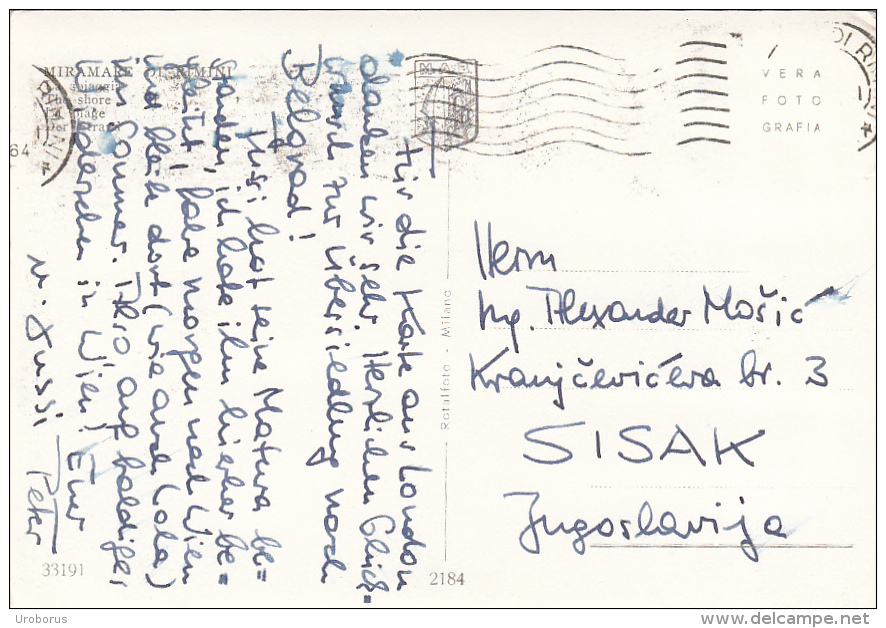 MIRAMARE DI RIMINI
La spiaggia
The shore
La plage
Der Strand
Für die Karte aus London
danken wir sehr. Herzlichen Glück=
wunsch zur Übersiedlung nach
Belgrad!
hat seine Matura be=
standen, ich habe ihm hierher be=
gleitet, fahre morgen nach Wien
und bleib dort (wie auch Lola)
im Sommer. Also, auf baldiges
Wiedersehen in Wien! Euer
Peter
u. Jussi
33191
2184
Rotalfoto - Milano
M.A.B.
64
DI RI
VERA
FOTO
GRAFIA
Herrn
Ing. Alexander Mošić
Kranjčevićeva br. 3
SISAK
Jugoslavija
Uroborus
www.delcampe.net